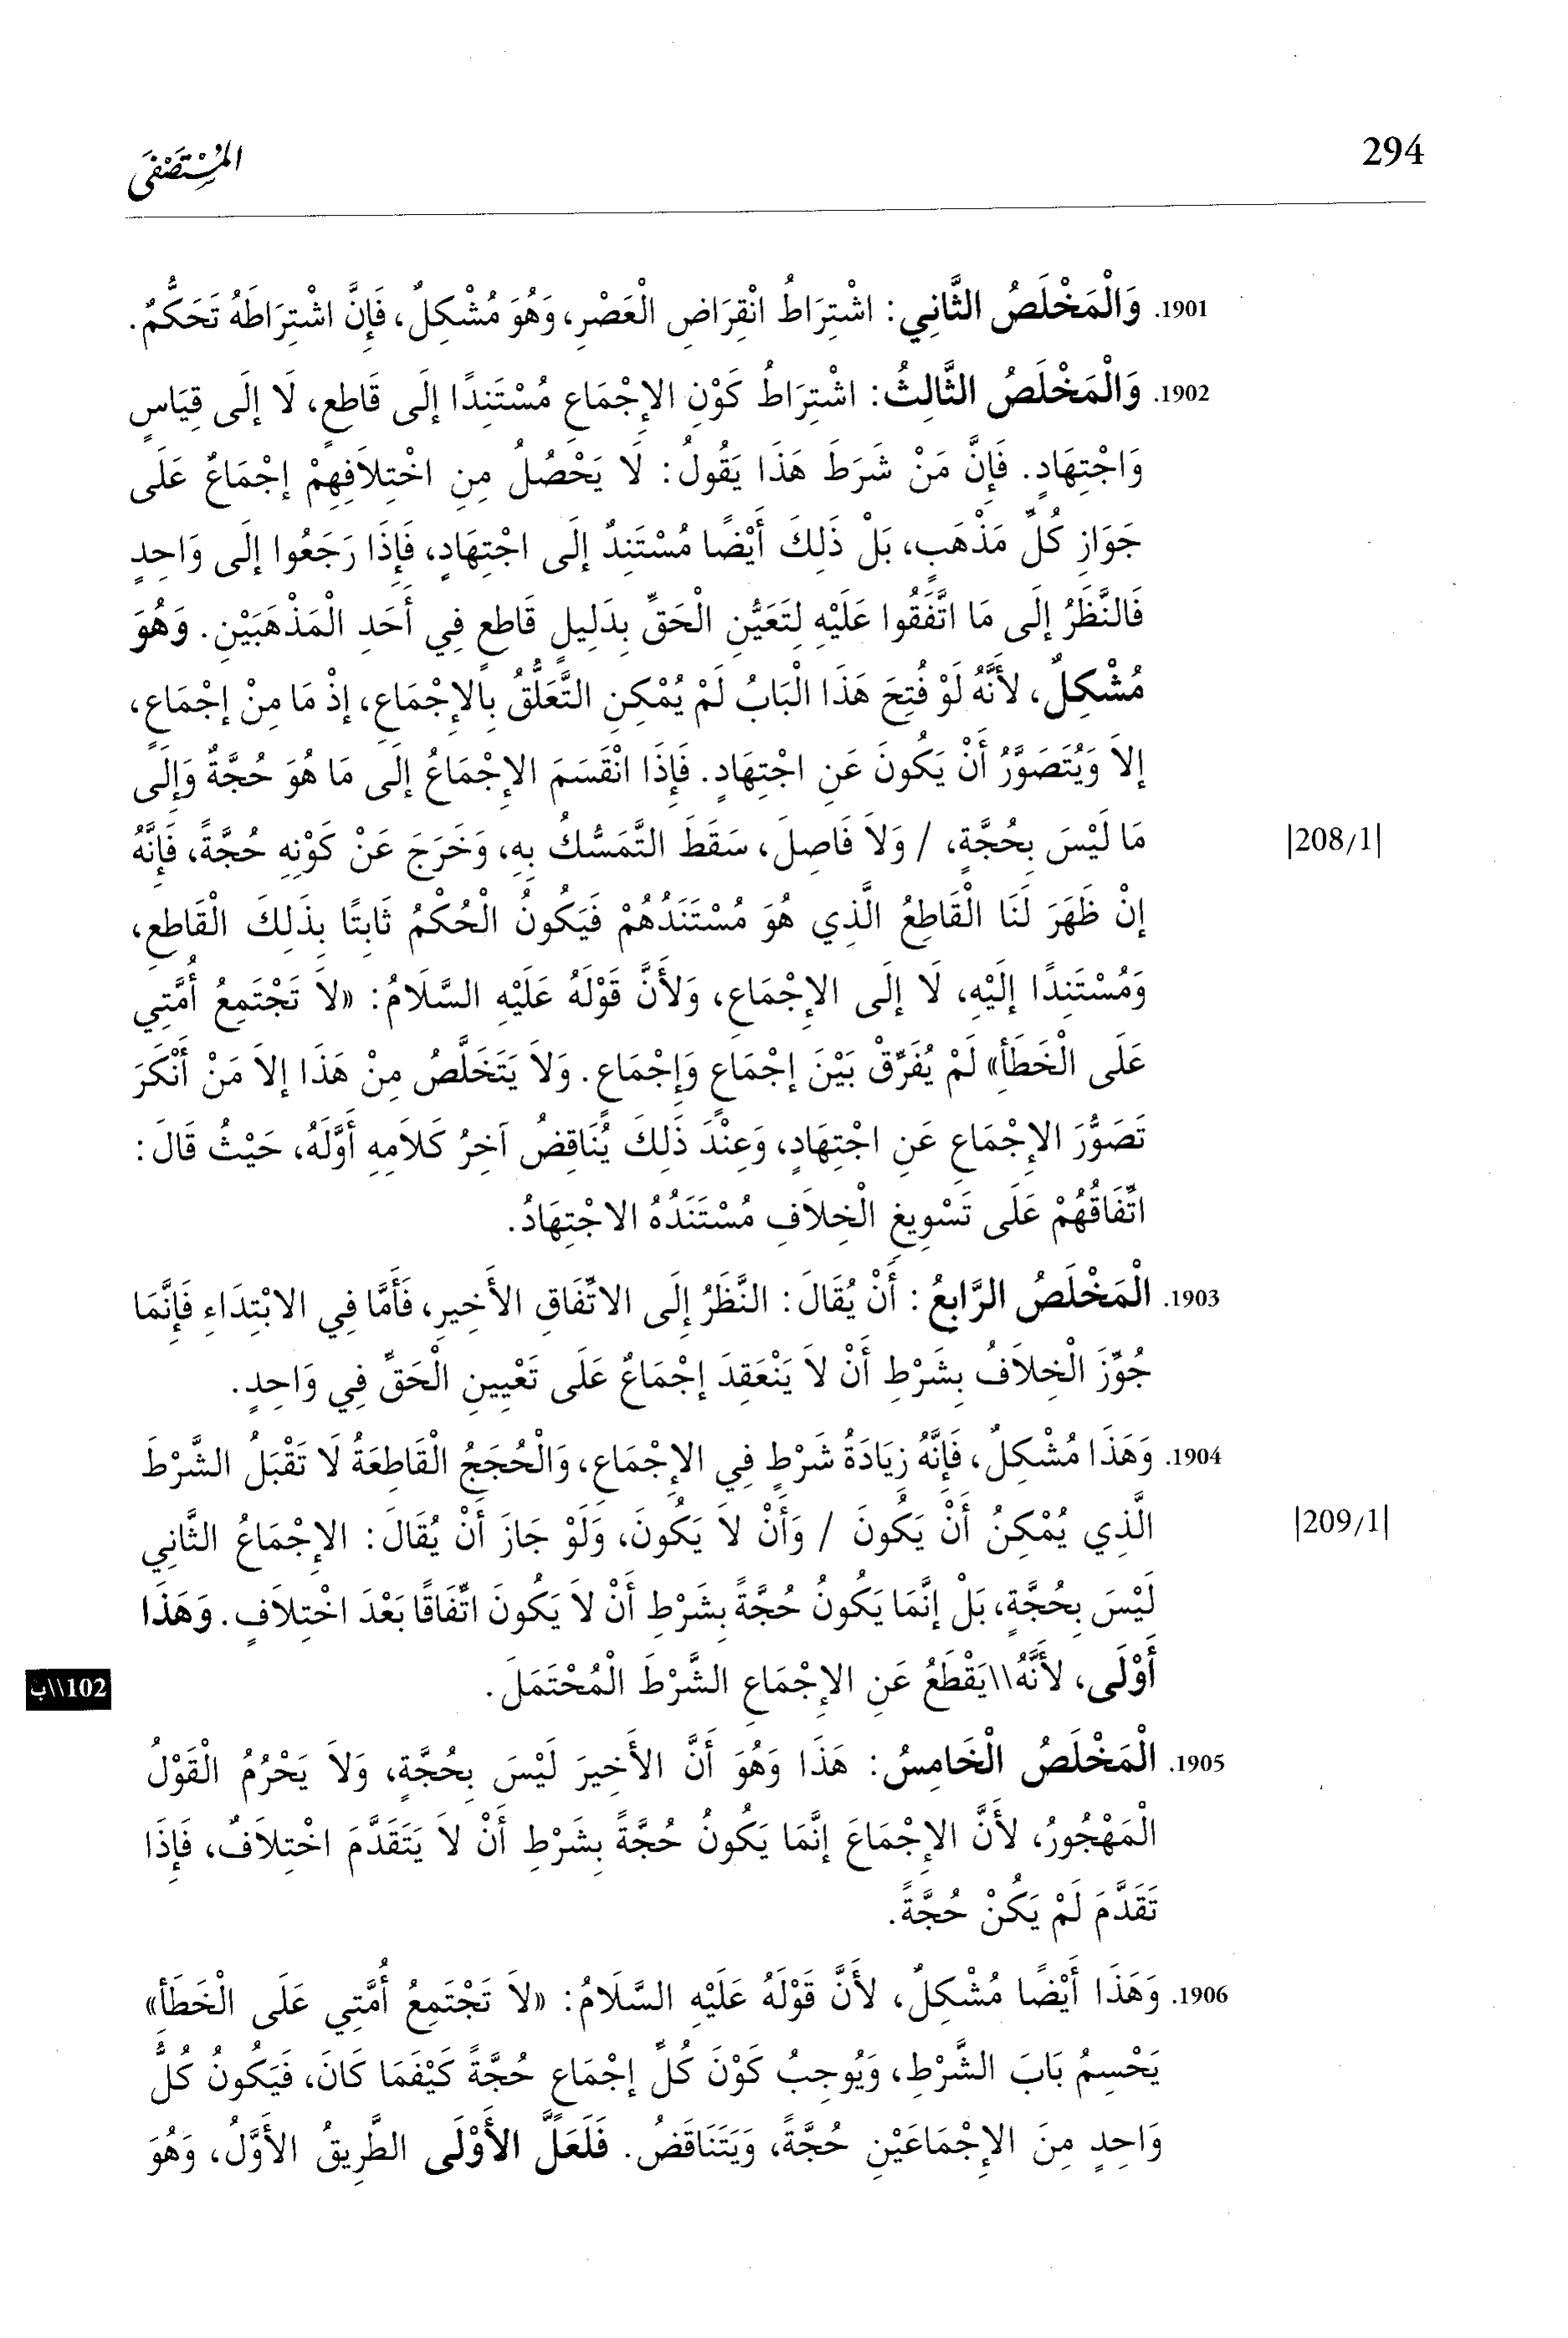 294
المُسْتَصْفَى
1901. وَالْمَخْلَصُ الثَّانِي: اشْتِرَاطُ انْقِرَاضِ الْعَصْرِ، وَهُوَ مُشْكِلٌ، فَإِنَّ اشْتِرَاطَهُ تَحَكُّمٌ.
1902. وَالْمَخْلَصُ الثَّالِثُ: اشْتِرَاطُ كَوْنِ الإِجْمَاعِ مُسْتَنِدًا إِلَى قَاطِعٍ، لَا إِلَى قِيَاسٍ
وَاجْتِهَادٍ. فَإِنَّ مَنْ شَرَطَ هَذَا يَقُولُ: لَا يَحْصُلُ مِنِ اخْتِلَافِهِمْ إِجْمَاعٌ عَلَى
جَوَازِ كُلِّ مَذْهَبٍ، بَلْ ذَلِكَ أَيْضًا مُسْتَنِدٌ إِلَى اجْتِهَادٍ، فَإِذَا رَجَعُوا إِلَى وَاحِدٍ
فَالنَّظَرُ إِلَى مَا اتَّفَقُوا عَلَيْهِ لِتَعَيُّنِ الْحَقِّ بِدَلِيلٍ قَاطِعٍ فِي أَحَدِ الْمَذْهَبَيْنِ. وَهُوَ
مُشْكِلٌ، لأَنَّهُ لَوْ فُتِحَ هَذَا الْبَابُ لَمْ يُمْكِنِ التَّعَلُّقُ بِالإِجْمَاعِ، إِذْ مَا مِنْ إِجْمَاعٍ،
إِلاَ وَيُتَصَوَّرُ أَنْ يَكُونَ عَنِ اجْتِهَادٍ. فَإِذَا انْقَسَمَ الإِجْمَاعُ إِلَى مَا هُوَ حُجَّةٌ وَإِلَى
مَا لَيْسَ بِحُجَّةٍ، / وَلاَ فَاصِلَ، سَقَطَ التَّمَسُّكُ بِهِ، وَخَرَجَ عَنْ كَوْنِهِ حُجَّةً، فَإِنَّهُ
|208/1|
إِنْ ظَهَرَ لَنَا الْقَاطِعُ الَّذِي هُوَ مُسْتَنَدُهُمْ فَيَكُونُ الْحُكْمُ ثَابِتًا بِذَلِكَ الْقَاطِعِ،
وَمُسْتَنِدًا إِلَيْهِ، لَا إِلَى الإِجْمَاعِ، وَلأَنَّ قَوْلَهُ عَلَيْهِ السَّلَامُ: «لاَ تَجْتَمِعُ أُمَّتِي
عَلَى الْخَطَأِ» لَمْ يُفَرِّقْ بَيْنَ إِجْمَاعٍ وَإِجْمَاعٍ. وَلاَ يَتَخَلَّصُ مِنْ هَذَا إِلاَ مَنْ أَنْكَرَ
تَصَوُّرَ الإِجْمَاعِ عَنِ اجْتِهَادٍ، وَعِنْدَ ذَلِكَ يُنَاقِضُ آخِرُ كَلاَمِهِ أَوَّلَهُ، حَيْثُ قَالَ:
اتِّفَاقُهُمْ عَلَى تَسْوِيغِ الْخِلاَفِ مُسْتَنَدُهُ الاجْتِهَادُ.
1903. الْمَخْلَصُ الرَّابِعُ: أَنْ يُقَالَ: النَّظَرُ إِلَى الاتِّفَاقِ الأَخِيرِ، فَأَمَّا فِي الابْتِدَاءِ فَإِنَّمَا
جُوِّزَ الْخِلاَفُ بِشَرْطِ أَنْ لاَ يَنْعَقِدَ إِجْمَاعٌ عَلَى تَعْيِينِ الْحَقِّ فِي وَاحِدٍ.
1904. وَهَذَا مُشْكِلٌ، فَإِنَّهُ زِيَادَةُ شَرْطٍ فِي الإِجْمَاعِ، وَالْحُجَجُ الْقَاطِعَةُ لَا تَقْبَلُ الشَّرْطَ
الَّذِي يُمْكِنُ أَنْ يَكُونَ / وَأَنْ لاَ يَكُونَ، وَلَوْ جَازَ أَنْ يُقَالَ: الإِجْمَاعُ الثَّانِي
|209/1|
لَيْسَ بِحُجَّةٍ، بَلْ إِنَّمَا يَكُونُ حُجَّةً بِشَرْطِ أَنْ لاَ يَكُونَ اتِّفَاقًا بَعْدَ اخْتِلاَفٍ. وَهَذَا
أَوْلَى، لأَنَّهُ\\يَقْطَعُ عَنِ الإِجْمَاعِ الشَّرْطَ الْمُحْتَمَلَ.
102\\ب
1905. الْمَخْلَصُ الْخَامِسُ: هَذَا وَهُوَ أَنَّ الأَخِيرَ لَيْسَ بِحُجَّةٍ، وَلاَ يَحْرُمُ الْقَوْلُ
الْمَهْجُورُ، لأَنَّ الإِجْمَاعَ إِنَّمَا يَكُونُ حُجَّةً بِشَرْطِ أَنْ لاَ يَتَقَدَّمَ اخْتِلاَفٌ، فَإِذَا
تَقَدَّمَ لَمْ يَكُنْ حُجَّةً.
1906. وَهَذَا أَيْضًا مُشْكِلٌ، لأَنَّ قَوْلَهُ عَلَيْهِ السَّلَامُ: «لاَ تَجْتَمِعُ أُمَّتِي عَلَى الْخَطَأِ»
يَحْسِمُ بَابَ الشَّرْطِ، وَيُوجِبُ كَوْنَ كُلِّ إِجْمَاعٍ حُجَّةً كَيْفَمَا كَانَ، فَيَكُونُ كُلُّ
وَاحِدٍ مِنَ الإِجْمَاعَيْنِ حُجَّةً، وَيَتَنَاقَضُ. فَلَعَلَّ الأَوْلَى الطَّرِيقُ الأَوَّلُ، وَهُوَ